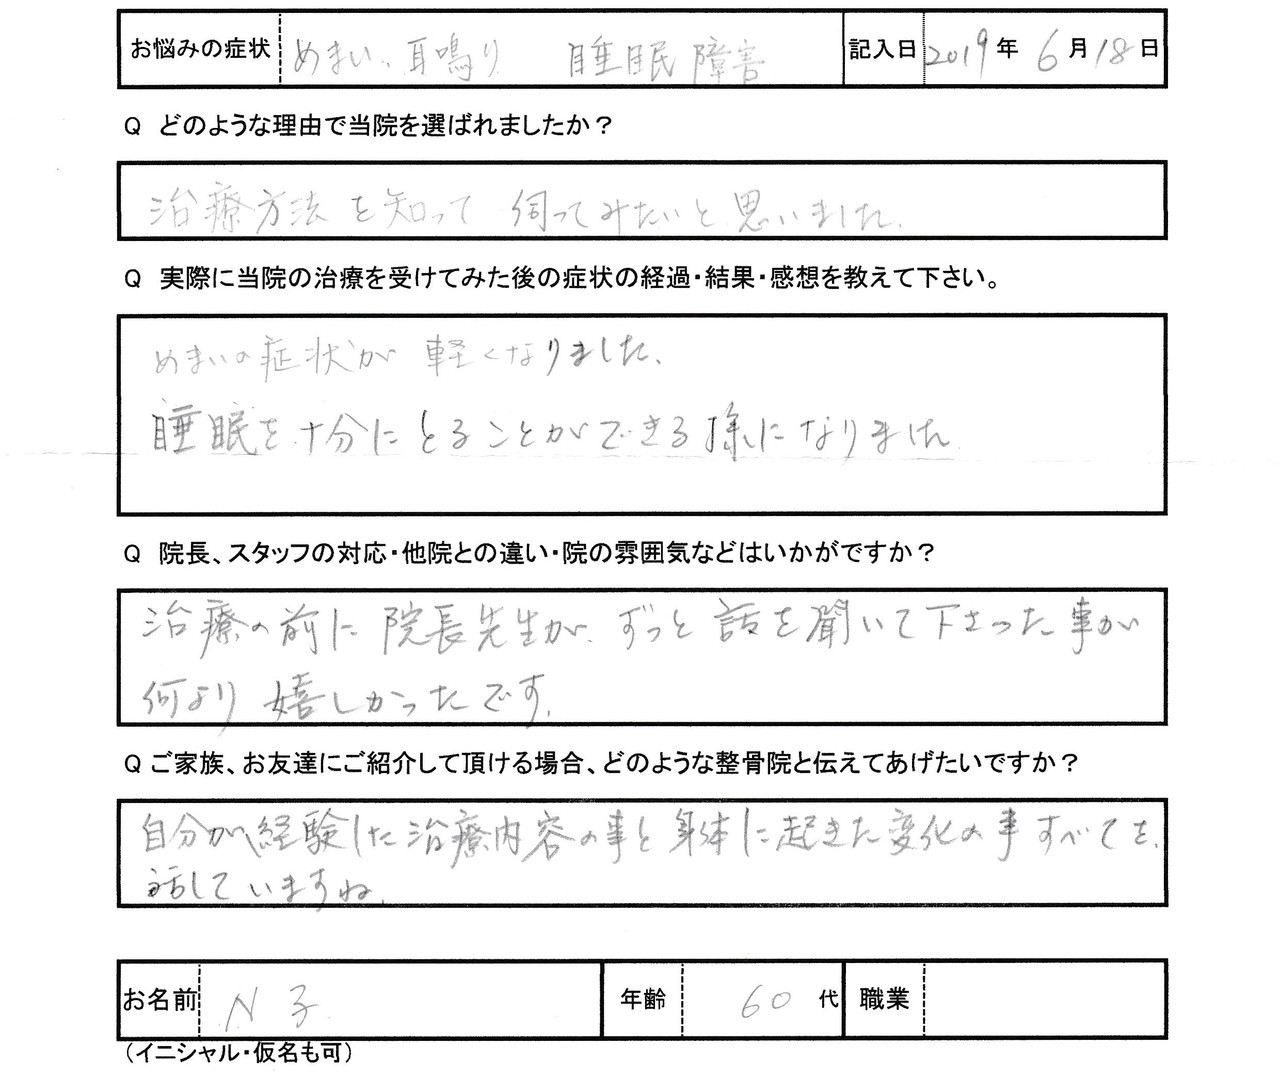 お悩みの症状 めまい、耳鳴り 睡眠障害 記入日 2019年 6月18日
Q どのような理由で当院を選ばれましたか？
治療方法を知って 伺ってみたいと思いました。
Q 実際に当院の治療を受けてみた後の症状の経過・結果・感想を教えて下さい。
めまいの症状が 軽くなりました、
睡眠を十分にとることができる様になりました
Q 院長、スタッフの対応・他院との違い・院の雰囲気などはいかがですか？
治療の前に院長先生が、ずっと話を聞いて下さった事が
何より嬉しかったです。
Q ご家族、お友達にご紹介して頂ける場合、どのような整骨院と伝えてあげたいですか？
自分が経験した治療内容の事と身体に起きた変化の事すべてを、
話していますね。
お名前 N子 年齢 60代 職業
（イニシャル・仮名も可）